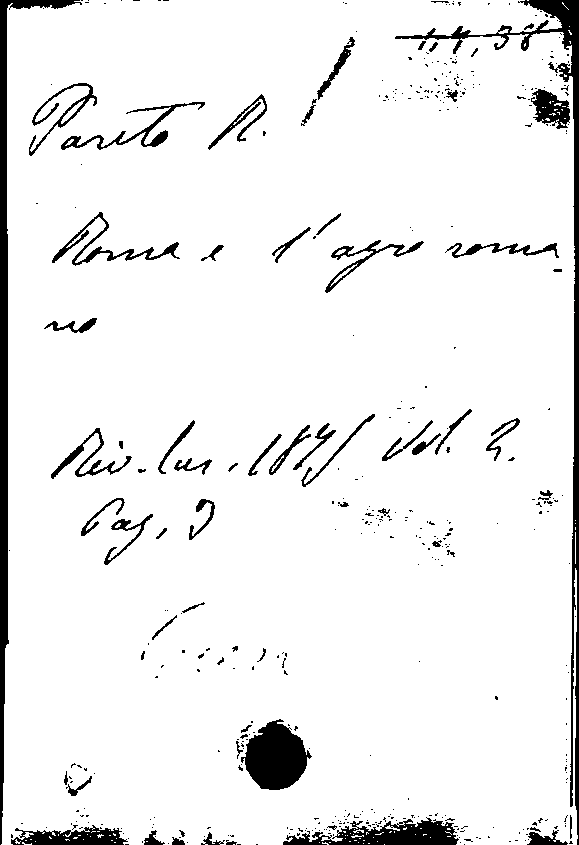 1,4,38
Pareto R.
Roma e l'agro roma-
no
Riv. Eur. 1875 Vol. 2.
Pag. 3